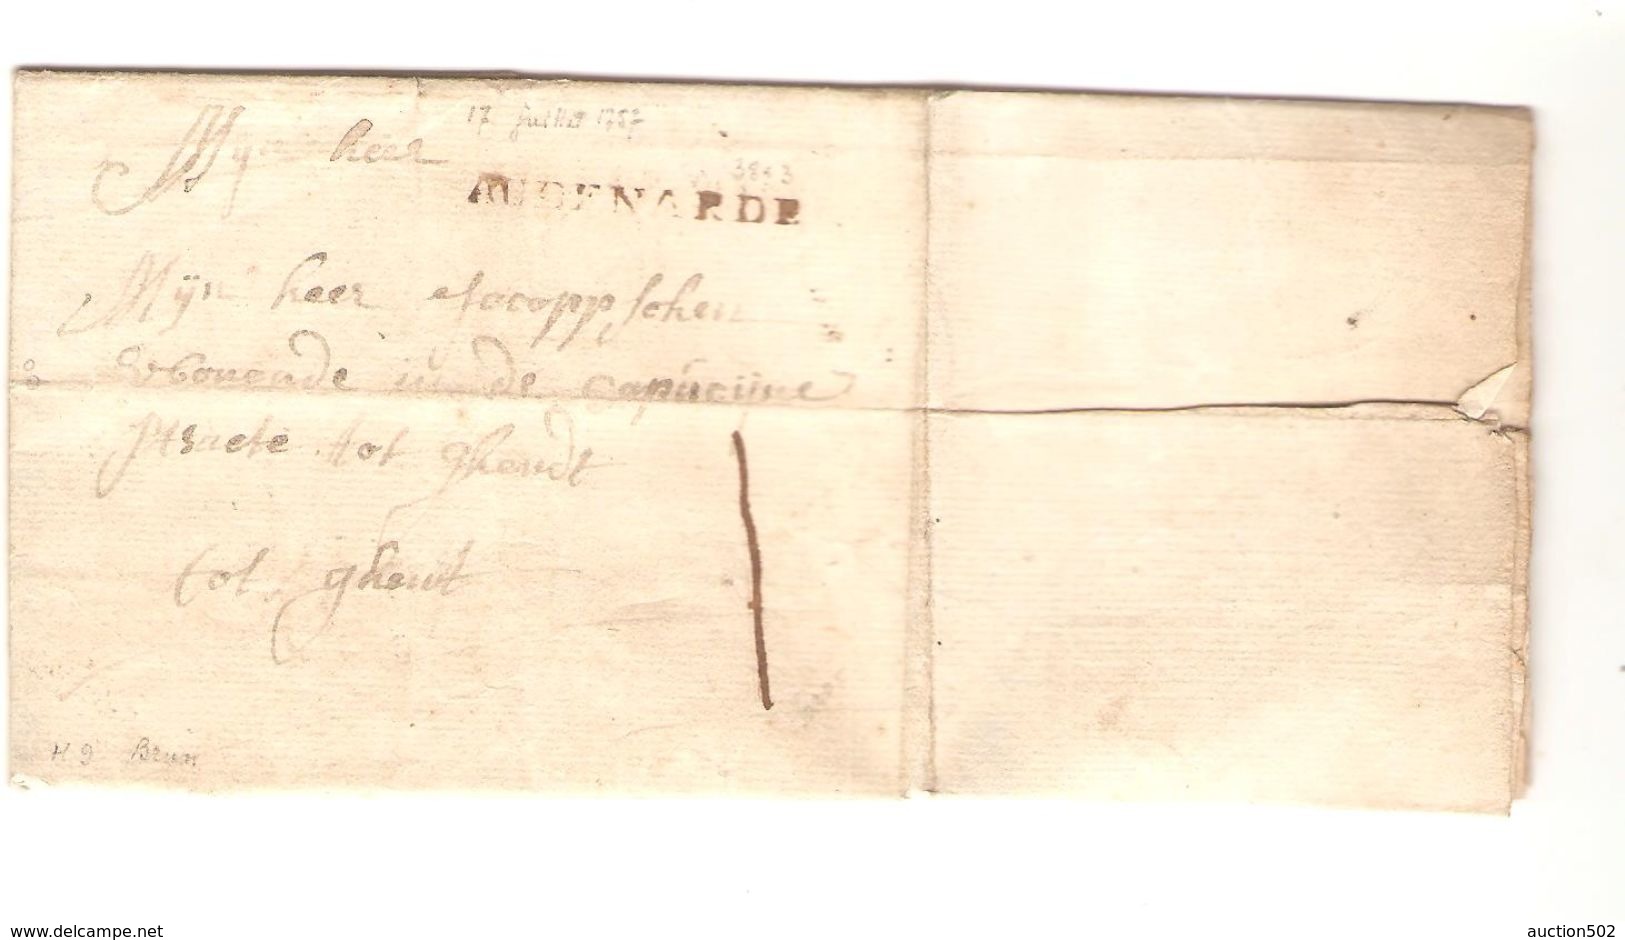 17 juillet 1787
Myn heer
3853
AUDENARDE
Mijn heer
in de capucijne
straete tot ghendt
tot ghent
1
H 9 Brun
www.delcampe.net
auction502